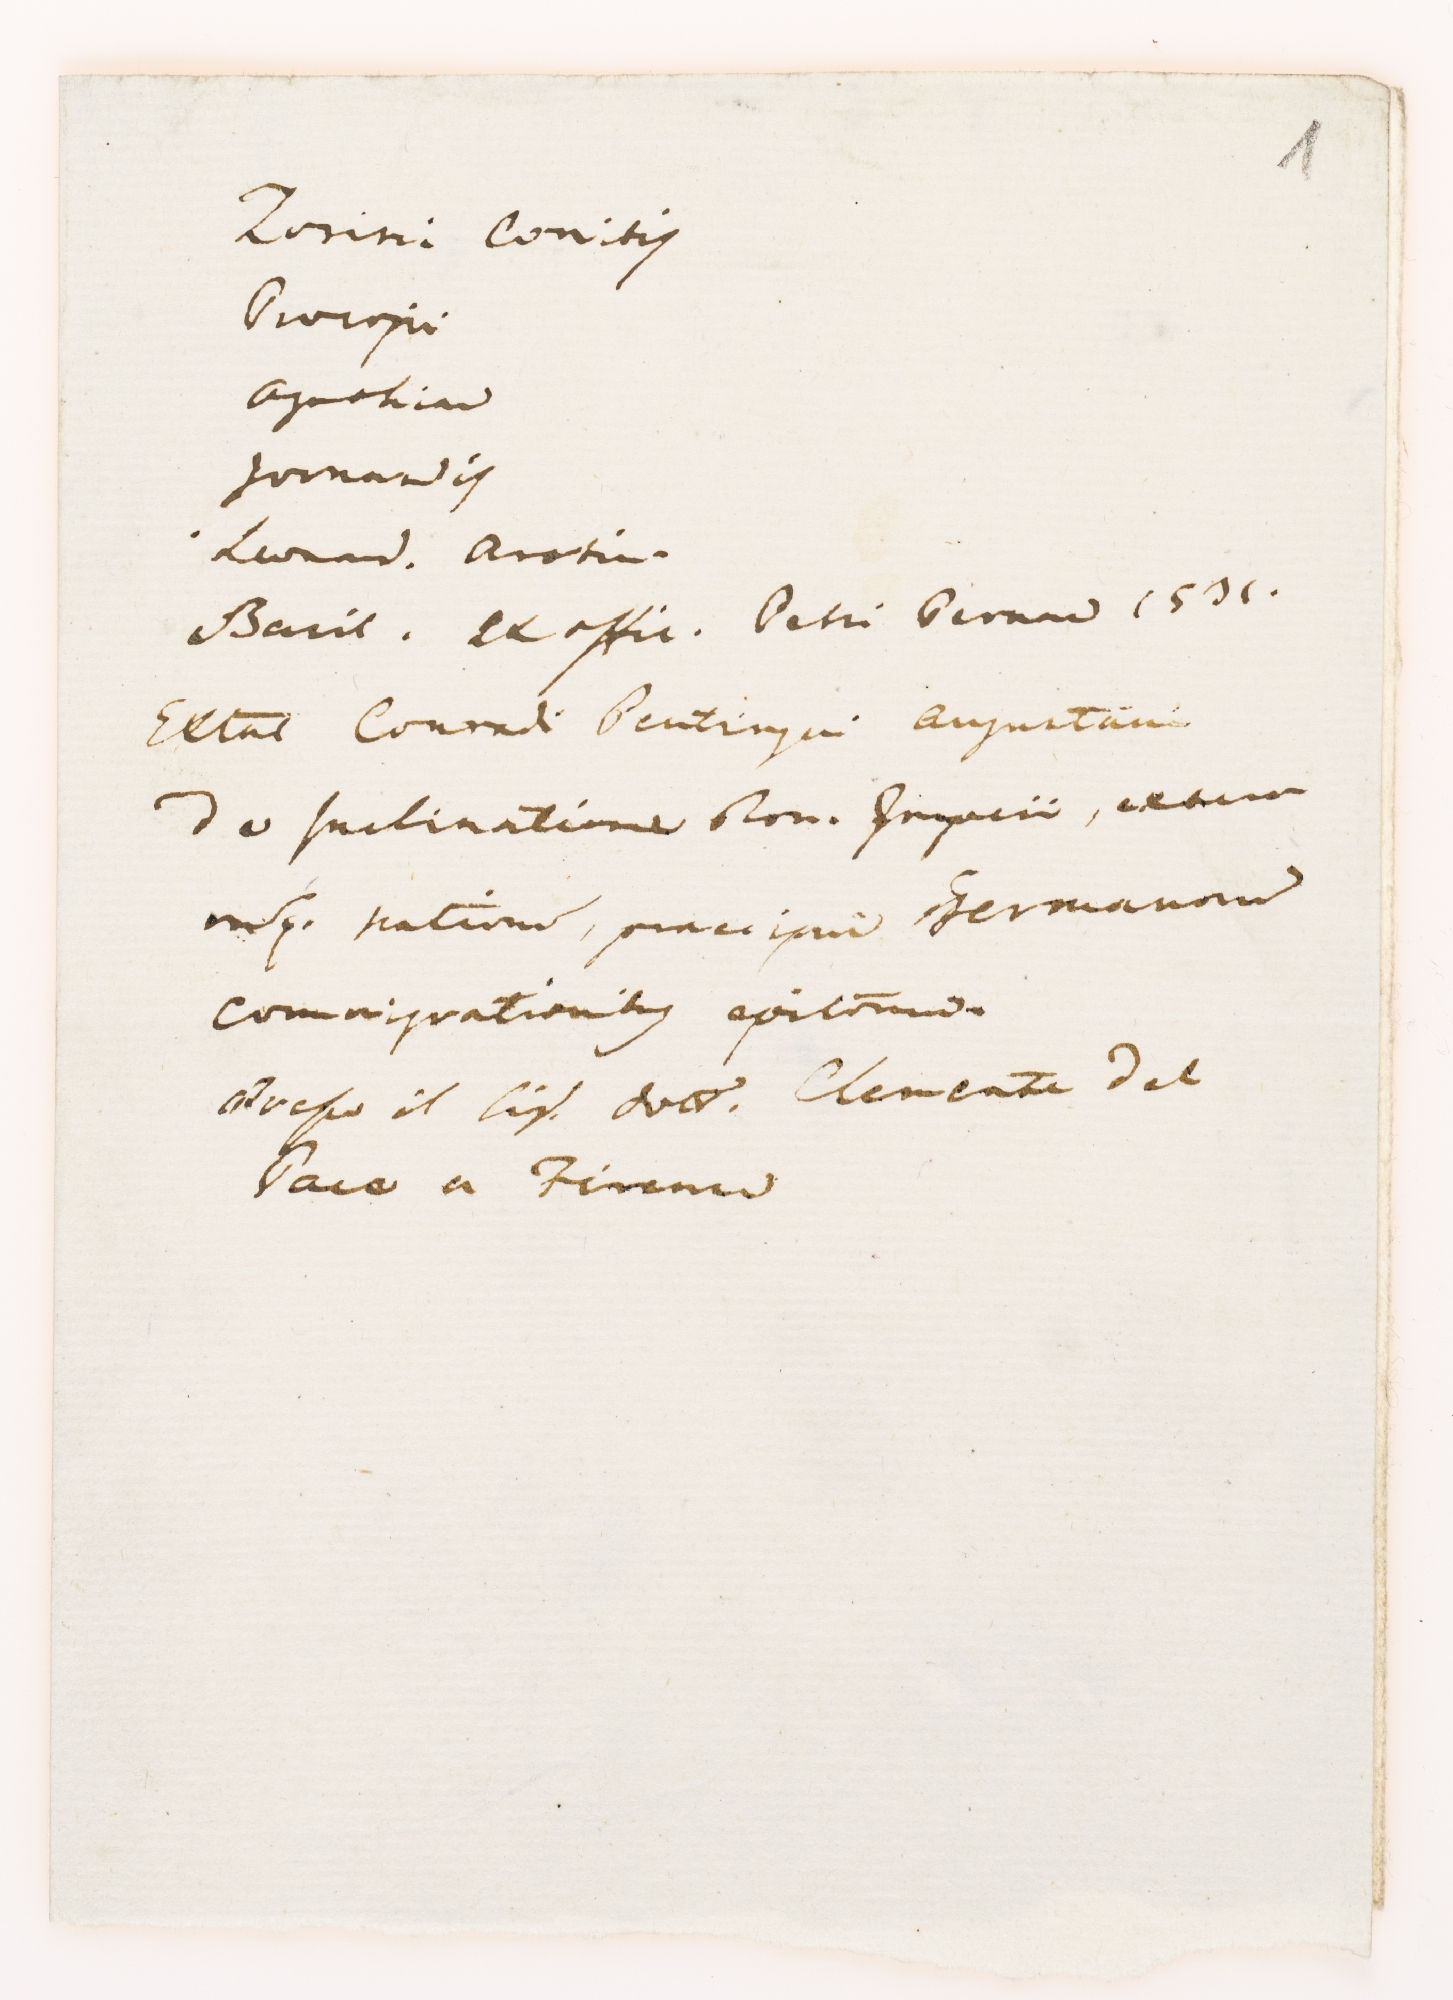 1
Zosimi Comitis
Procopii
Agathiae
Jornandis
Leonard. Aretin.
Basil. ex offic. Petri Pernae 1531.
Extat Conradi Peutingeri Augustani
De Inclinatione Rom. Imperii, exterar
mq. nationū, praecipue Germanorū
commigrationibus epitome.
Presso il Sigr. dott. Clemente Del
Pace a Firenze